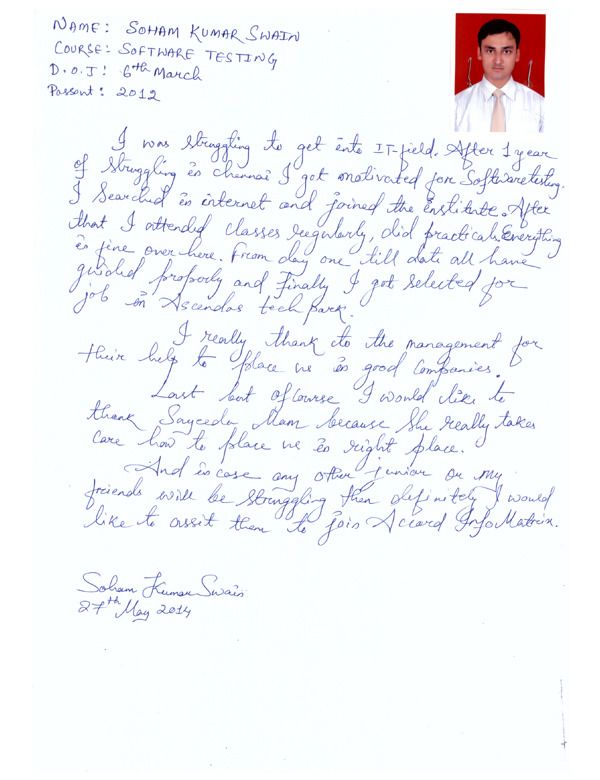 NAME: SOHAM KUMAR SWAIN
COURSE: SOFTWARE TESTING
D.O.J: 6th March
Passout: 2012
I was struggling to get into IT-field. After 1 year
of struggling in chennai I got motivated for Software testing.
I Searched in internet and joined the institute. After
that I attended classes regularly, did practicals. Everything
is fine over here. From day one till date all have
guided properly and finally I got selected for
job in Ascendas tech park.
I really thank to the management for
their help to place us in good Companies.
Last but ofcourse I would like to
thank Sayeeda Mam because She really takes
care how to place us in right place.
And incase any other junior or my
friends will be struggling then definitely I would
like to assit them to join Accord Info Matrix.
Soham Kumar Swain
27th May 2014